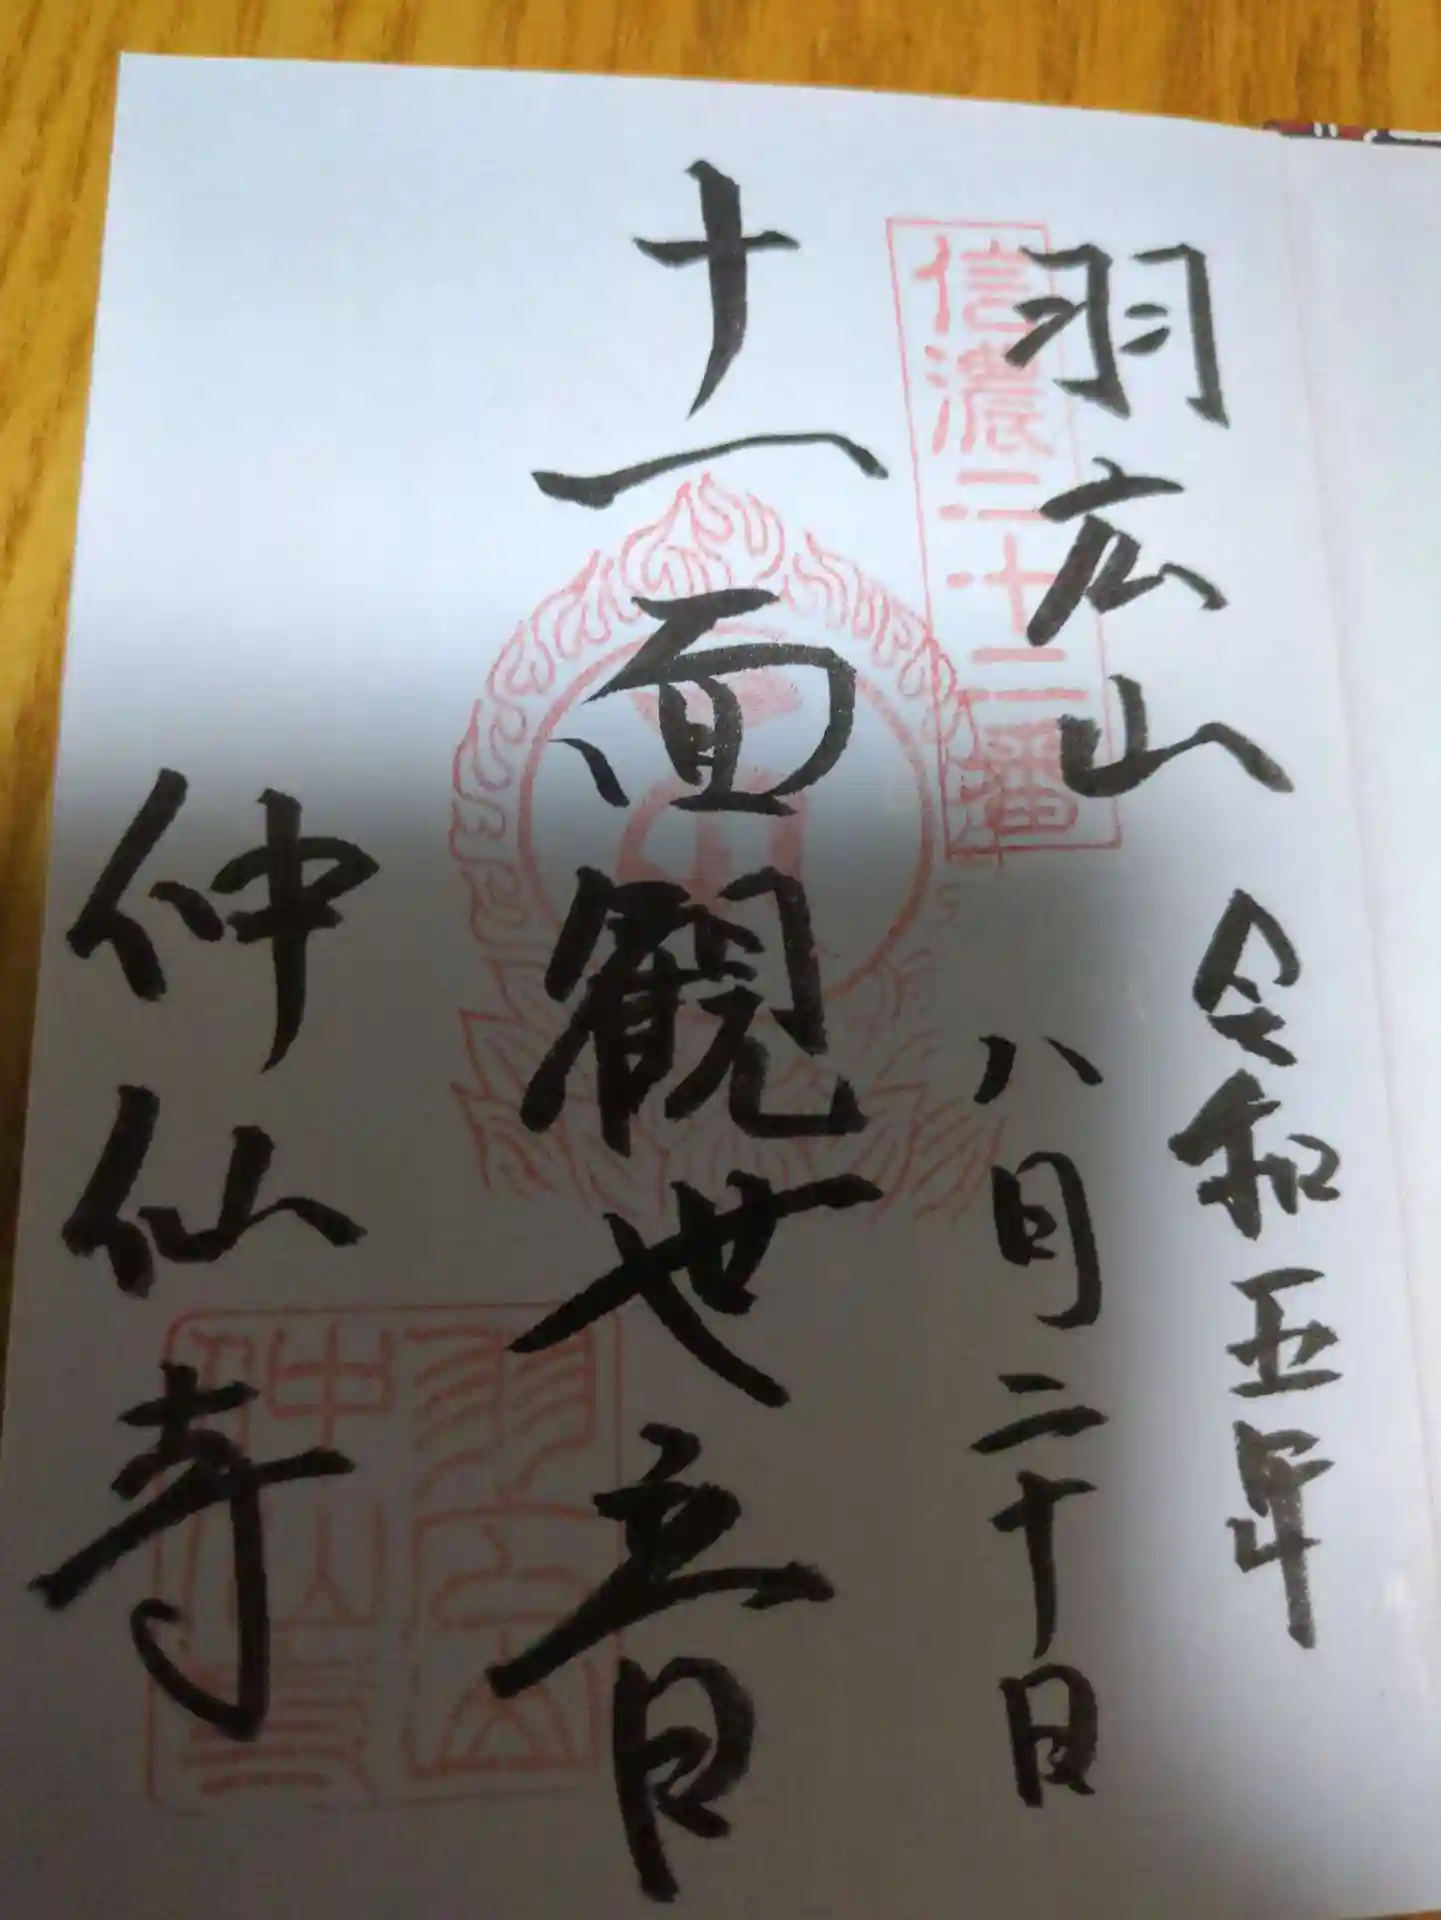 羽広山
令和五年
八月二十日
信濃二十二番
十一面観世音
仲仙寺
羽広山
仲仙寺